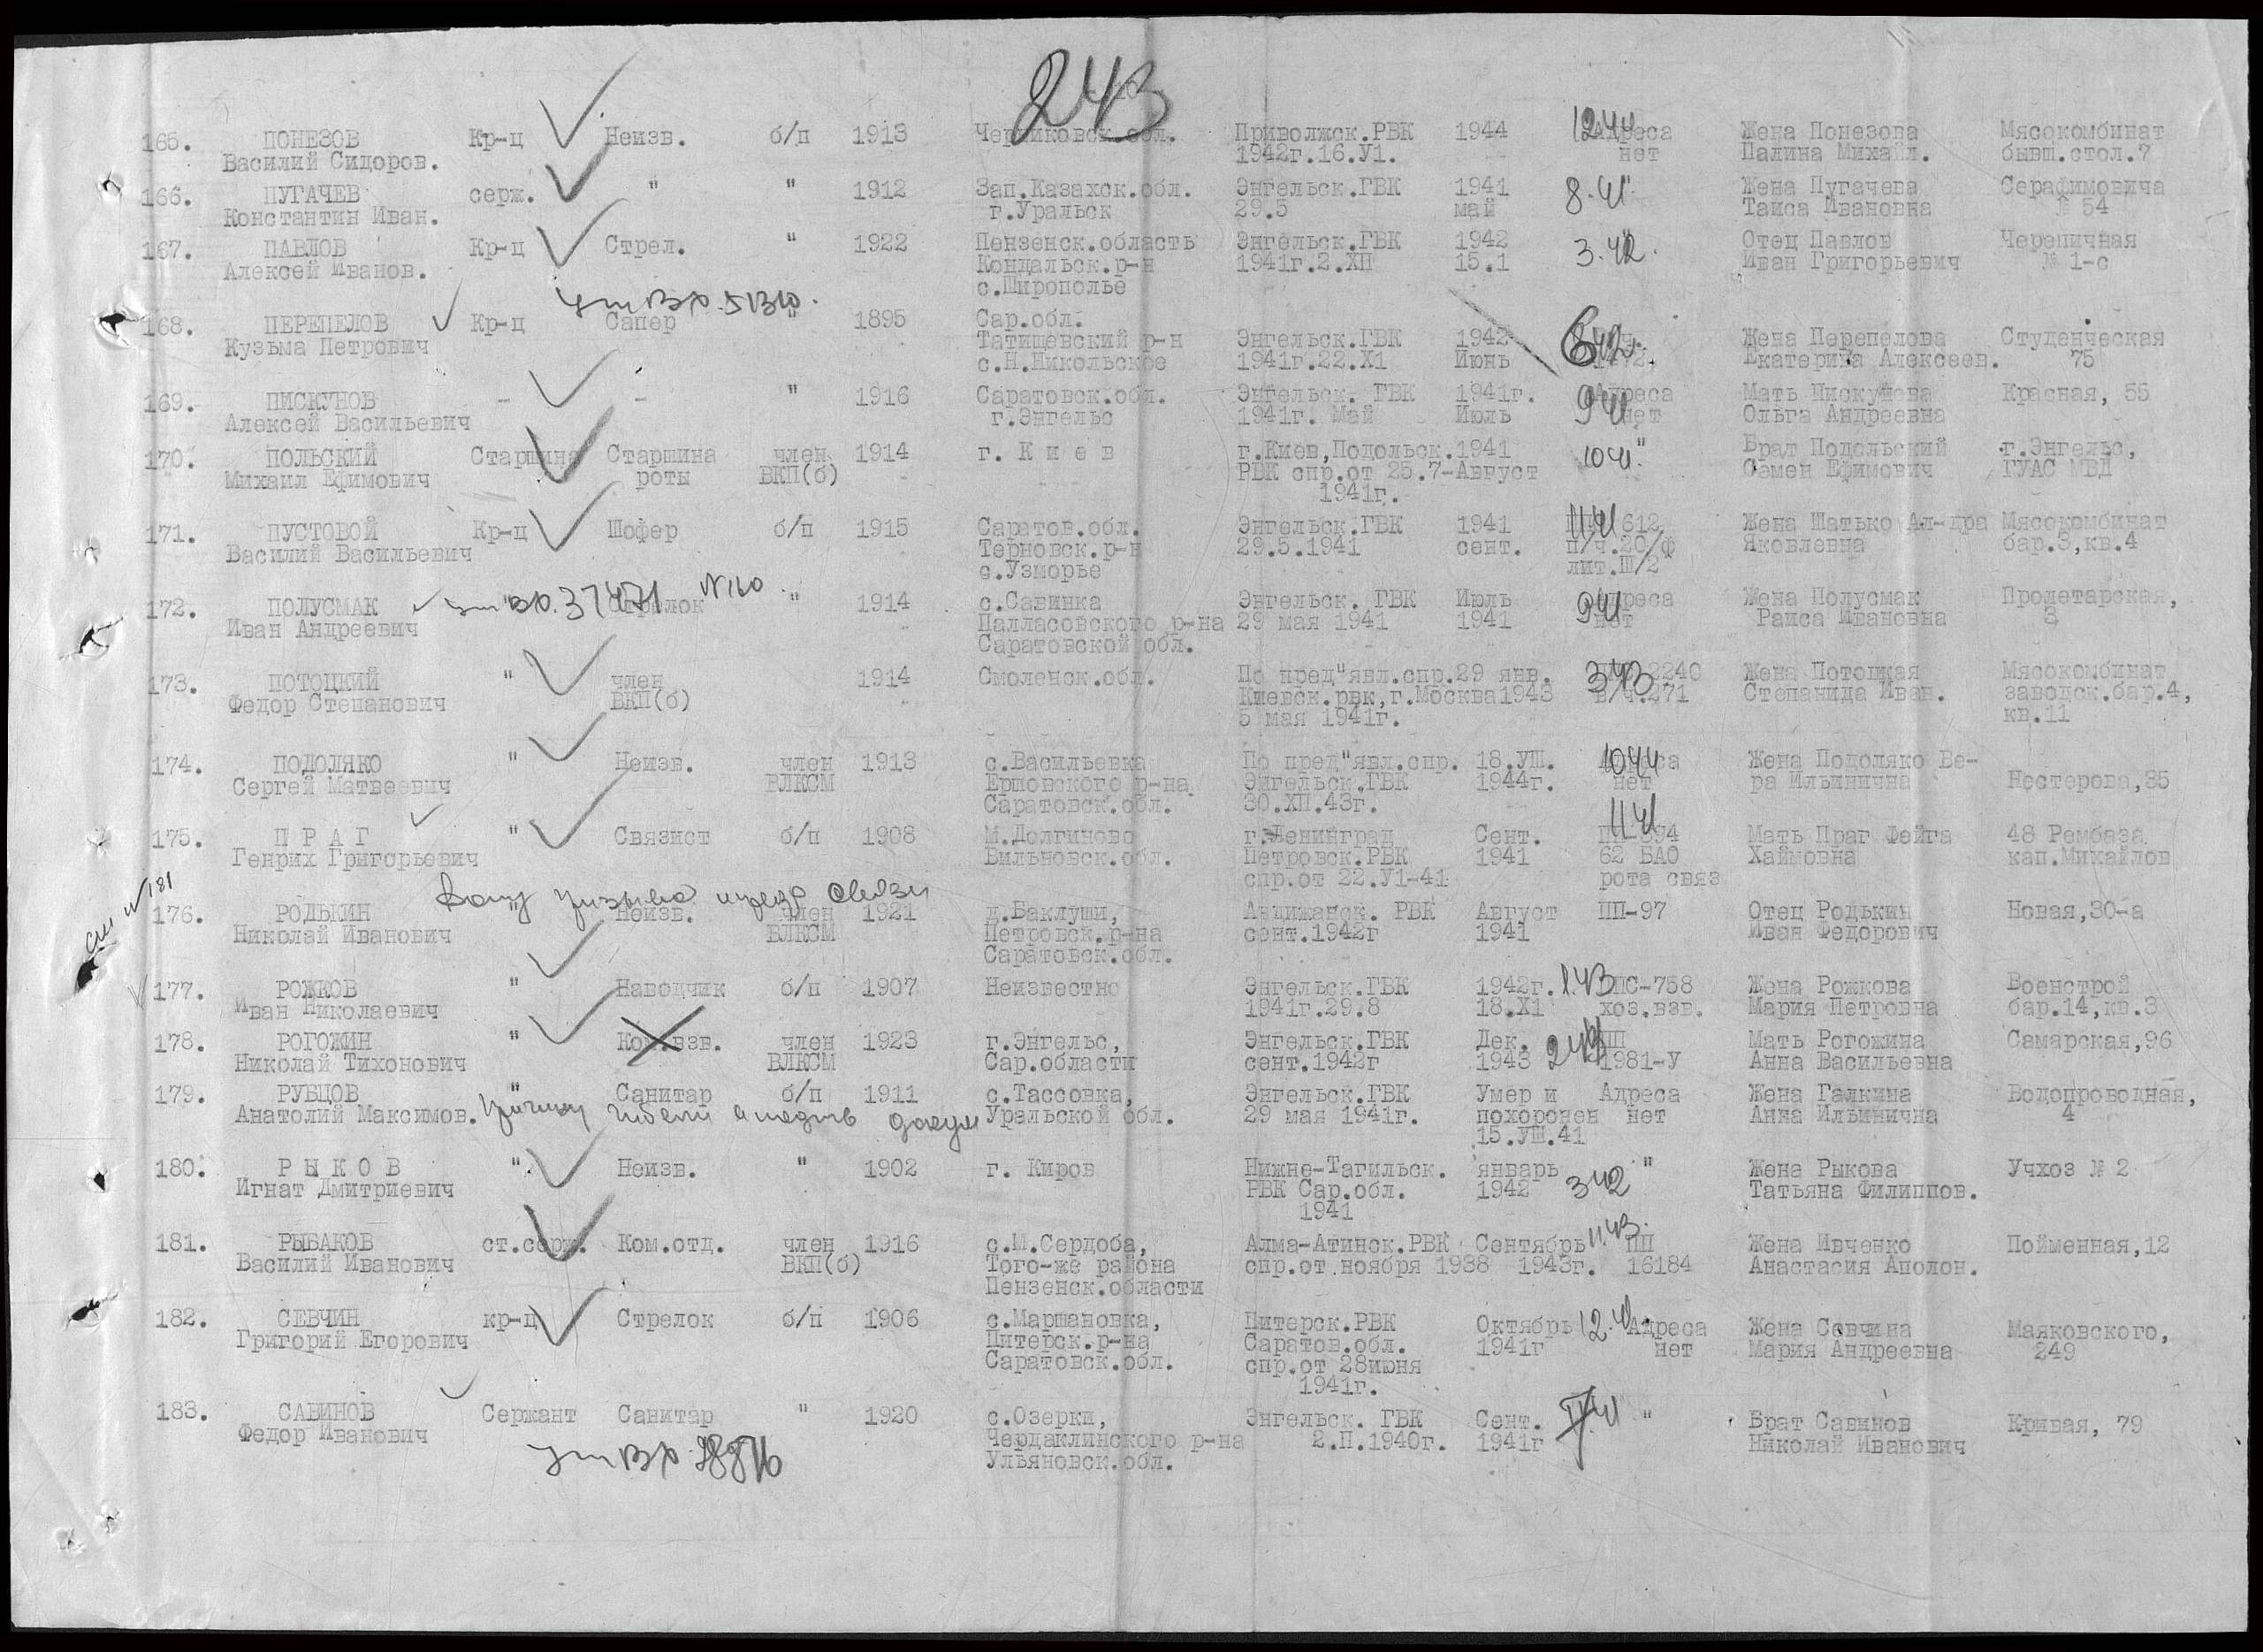 243
165. ПОНЕЗОВ Кр-ц Неизв. б/п 1913 Черниковск.обл. Приволжск.РВК 1944 12.44 Адреса Жена Понезова Мясокомбинат
Василий Сидоров. 1942г.16.У1. нет Палина Михайл. бывш.стол.7
166. ПУГАЧЕВ серж. " " 1912 Зап.Казахск.обл. Энгельск.ГВК 1941 8.41 " Жена Пугачева Серафимовича
Константин Иван. г.Уральск 29.5 май Таиса Ивановна № 54
167. ПАВЛОВ Кр-ц Стрел. " 1922 Пензенск.область Энгельск.ГВК 1942 3.42. " Отец Павлов Черепичная
Алексей Иванов. Кондальск.р-н 1941г.2.ХП 15.1 Иван Григорьевич № 1-с
с.Широполье
168. ПЕРЕПЕЛОВ Кр-ц Сапер " 1895 Сар.обл.
Кузьма Петрович Татищевский р-н Энгельск.ГВК 1942 Жена Перепелова Студенческая
с.Н.Никольское 1941г.22.Х1 Июнь Екатерина Алексеев. 75
169. ПИСКУНОВ - - " 1916 Саратовск.обл. Энгельск. ГВК 1941г. 9.41 Адреса Мать Пискунова Красная, 55
Алексей Васильевич г.Энгельс 1941г. Май Июль нет Ольга Андреевна
170. ПОЛЬСКИЙ Старшина Старшина член 1914 г. К и е в г.Киев,Подольск.1941 10.41. " Брат Подольский г.Энгельс,
Михаил Ефимович роты ВКП(б) РВК спр.от 25.7-Август Семен Ефимович ГУАС МВД
1941г.
171. ПУСТОВОЙ Кр-ц Шофер б/п 1915 Саратов.обл. Энгельск.ГВК 1941 11.41 612 Жена Шатько Ал-дра Мясокомбинат
Василий Васильевич Терновск.р-н 29.5.1941 сент. п/ч.20/ф Яковлевна бар.3,кв.4
с.Узморье лит.Ш/2
172. ПОЛУСМАК Стрелок " 1914 с.Савинка Энгельск. ГВК Июль 9.41 Адреса Жена Полусмак Пролетарская,
Иван Андреевич Палласовского р-на 29 мая 1941 1941 нет Раиса Ивановна 8
Саратовской обл.
173. ПОТОЦКИЙ " член 1914 Смоленск.обл. По пред"явл.спр.29 янв. 3.43 2240 Жена Потоцкая Мясокомбинат
Федор Степанович ВКП(б) Киевск.рвк,г.Москва1943 в/ч.271 Степанида Иван. заводск.бар.4,
5 мая 1941г. кв.11
174. ПОДОЛЯКО " Неизв. член 1913 с.Васильевка По пред"явл.спр. 18.УШ. 10.44 Адреса Жена Подоляко Ве-
Сергей Матвеевич ВЛКСМ Ершовского р-на Энгельск.ГВК 1944г. нет ра Ильинична Нестерова,35
Саратовск.обл. 30.ХП.43г.
11.41
175. П Р А Г " Связист б/п 1908 М.Долгиново г.Ленинград Сент. ПП-394 Мать Праг Фейга 48 Рембаза
Генрих Григорьевич Вильновск.обл. Петровск.РВК 1941 62 БАО Хаймовна кап.Михайлов
спр.от 22.У1-41 рота связ
176. РОДЬКИН " Неизв. член 1921 д.Баклуши, Андижанск. РВК Август ПП-97 Отец Родькин Новая,30-а
Николай Иванович ВЛКСМ Петровск.р-на сент.1942г 1941 Иван Федорович
Саратовск.обл.
177. РОЖКОВ " Наводчик б/п 1907 Неизвестно Энгельск.ГВК 1942г. 1.43 ППС-758 Жена Рожкова Военстрой
Иван Николаевич 1941г.29.8 18.Х1 хоз.взв. Мария Петровна бар.14,кв.3
178. РОГОЖИН " Ком.взв. член 1923 г.Энгельс, Энгельск.ГВК Дек. 2.44 ПП Мать Рогожина Самарская,96
Николай Тихонович ВЛКСМ Сар.области сент.1942г 1943 1981-У Анна Васильевна
179. РУБЦОВ " Санитар б/п 1911 с.Тассовка, Энгельск.ГВК Умер и Адреса Жена Галкина Водопроводная,
Анатолий Максимов. Уральской обл. 29 мая 1941г. похоронен нет Анна Ильинична 4
15.УШ.41
180. Р Ы К О В " Неизв. " 1902 г. Киров Нижне-Тагильск. январь " Жена Рыкова Учхоз № 2
Игнат Дмитриевич РВК Сар.обл. 1942 3.42 Татьяна Филиппов.
1941
181. РЫБАКОВ ст.серж. Ком.отд. член 1916 с.М.Сердоба, Алма-Атинск.РВК Сентябрь 11.43. ПП Жена Ивченко Пойменная,12
Василий Иванович ВКП(б) Того-же района спр.от ноября 1938 1943г. 16184 Анастасия Аполон.
Пензенск.области
182. СЕВЧИН кр-ц Стрелок б/п 1906 с.Маршановка, Питерск.РВК Октябрь 12.41 Адреса Жена Севчина Маяковского,
Григорий Егорович Питерск.р-на Саратов.обл. 1941г нет Мария Андреевна 249
Саратовск.обл. спр.от 28июня
1941г.
183. САВИНОВ Сержант Санитар " 1920 с.Озерки, Энгельск. ГВК Сент. " Брат Савинов Кривая, 79
Федор Иванович Чердаклинского р-на 2.П.1940г. 1941г Николай Иванович
Ульяновск.обл.